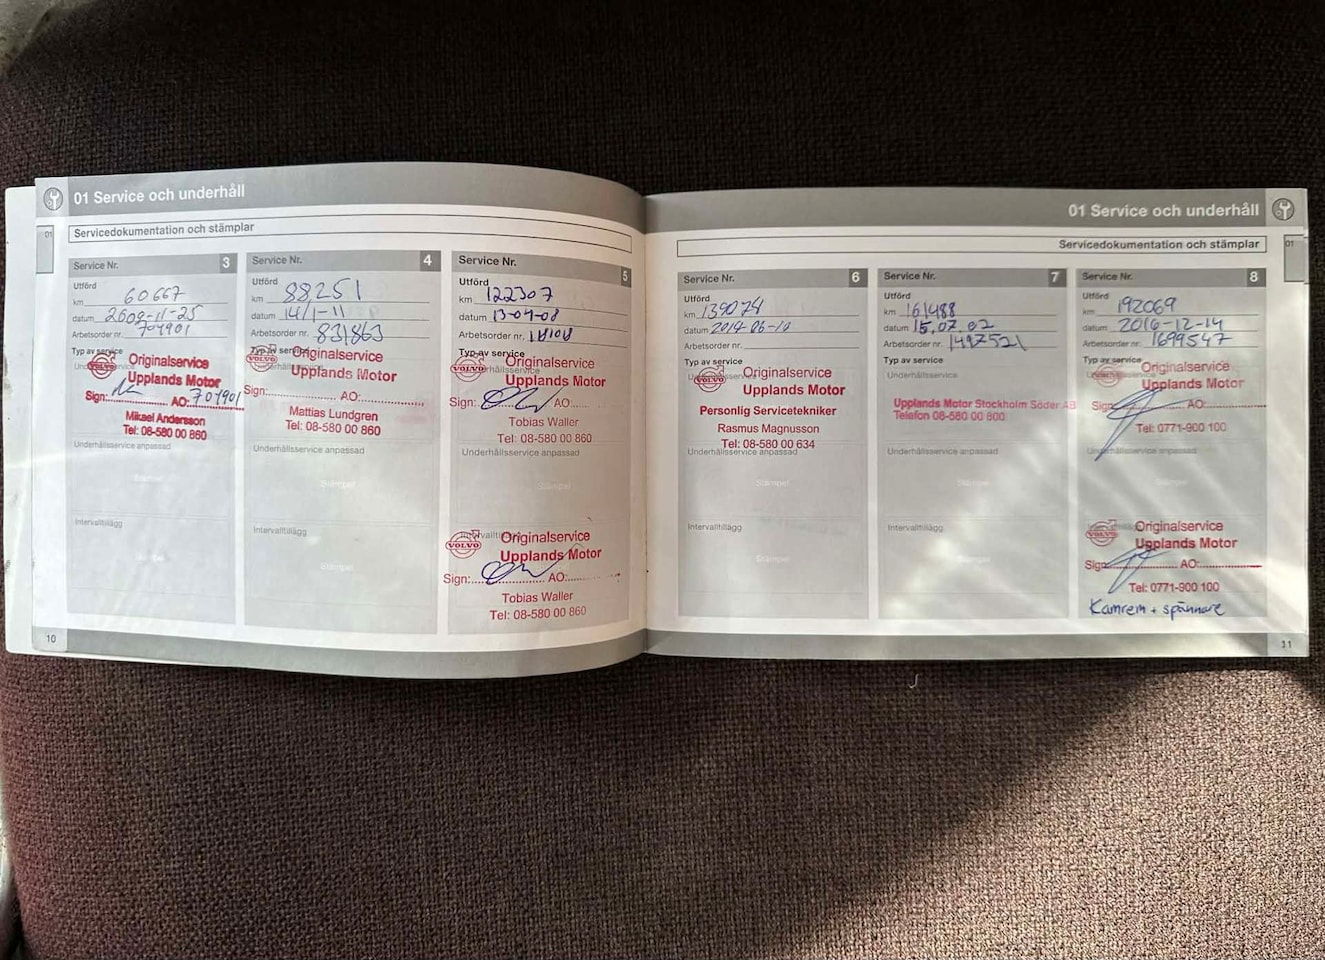 01 Service och underhåll
01
Servicedokumentation och stämplar
Service Nr. 3
Utförd
km 60667
datum 2608-11-25
Arbetsorder nr. 704901
Typ av service
Originalservice
Upplands Motor
Sign: AO: 704901
Mikael Andersson
Tel: 08-580 00 860
Underhållsservice anpassad
Stämpel
Intervalltillägg
Service Nr. 4
Utförd
km 88251
datum 14/1-11
Arbetsorder nr. 831863
Typ av service
VOLVO
Originalservice
Upplands Motor
Sign: AO:
Mattias Lundgren
Tel: 08-580 00 860
Underhållsservice anpassad
Stämpel
Intervalltillägg
Stämpel
Service Nr. 5
Utförd
km 122307
datum 13-04-08
Arbetsorder nr. 18108
Typ av service
VOLVO
Originalservice
Upplands Motor
Sign: AO:
Tobias Waller
Tel: 08-580 00 860
Underhållsservice anpassad
Stämpel
Intervalltillägg
VOLVO
Originalservice
Upplands Motor
Sign: AO:
Tobias Waller
Tel: 08-580 00 860
10
01 Service och underhåll
01
Servicedokumentation och stämplar
Service Nr. 6
Utförd
km 139074
datum 2014-06-10
Arbetsorder nr.
Typ av service
VOLVO
Originalservice
Upplands Motor
Personlig Servicetekniker
Rasmus Magnusson
Tel: 08-580 00 634
Underhållsservice anpassad
Stämpel
Intervalltillägg
Stämpel
Service Nr. 7
Utförd
km 161488
datum 15.07.02
Arbetsorder nr. 1497521
Typ av service
Underhållsservice
Upplands Motor Stockholm Söder AB
Telefon 08-580 00 800
Underhållsservice anpassad
Stämpel
Intervalltillägg
Stämpel
Service Nr. 8
Utförd
km 192069
datum 2016-12-14
Arbetsorder nr. 1699547
Typ av service
VOLVO
Originalservice
Upplands Motor
Sign: AO:
Tel: 0771-900 100
Underhållsservice anpassad
Stämpel
VOLVO
Originalservice
Upplands Motor
Sign: AO:
Tel: 0771-900 100
Kamrem + spännare
11